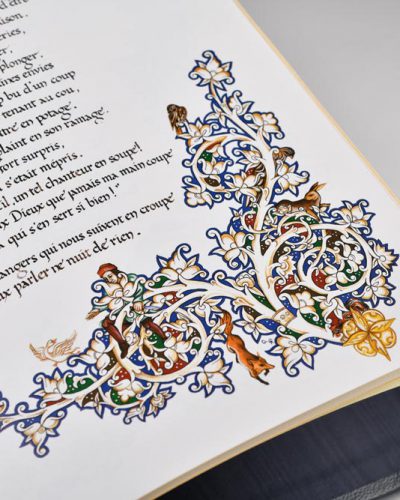 d'être
aison,
eries,
r,
plonger,
aines envies
p bu d'un coup
tenant au cou,
ttre en potage.
plaint en son ramage.
fort surpris,
s'était mépris.
il, un tel chanteur en soupe!
x Dieux que jamais ma main coupe
à qui s'en sert si bien!"
angers qui nous suivent en croupe
ux parler ne nuit de rien.